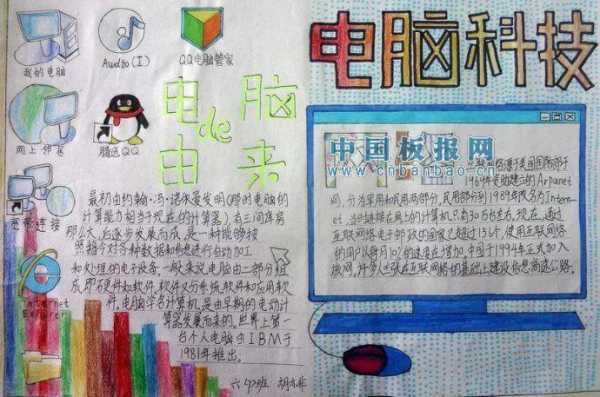 我的电脑
Audio(I)
QQ电脑管家
电脑科技
网上邻居
腾讯QQ
电脑
de
由来
宽带连接
Internet
Explorer
中国板报网
www.cnbanbao.cn
最初由约翰·冯·诺依曼发明(那时电脑的
计算能力相当于现在的计算器)有三间库房
那么大,后逐步发展而成,是一种能够按
照指令对各种数据和信息进行自动加工
和处理的电子设备,一般来说电脑由二部分组
成即硬件和软件,软件又分系统软件和应用软
件,电脑学名计算机,是由早期的电动计
算器发展而来的。世界上第一
台个人电脑由IBM于
1981年推出。
1969年受组建立的Arpanet
网,分为军用和民用两部分,民用部分到1989年改名为Inter-
net,当时连接在网上的计算机只有30万台左右,现在,通过
互联网络电子邮政的国家已超过136个,使用互联网络
的用户以每月10%的速度在增加,中国于1994年正式加入